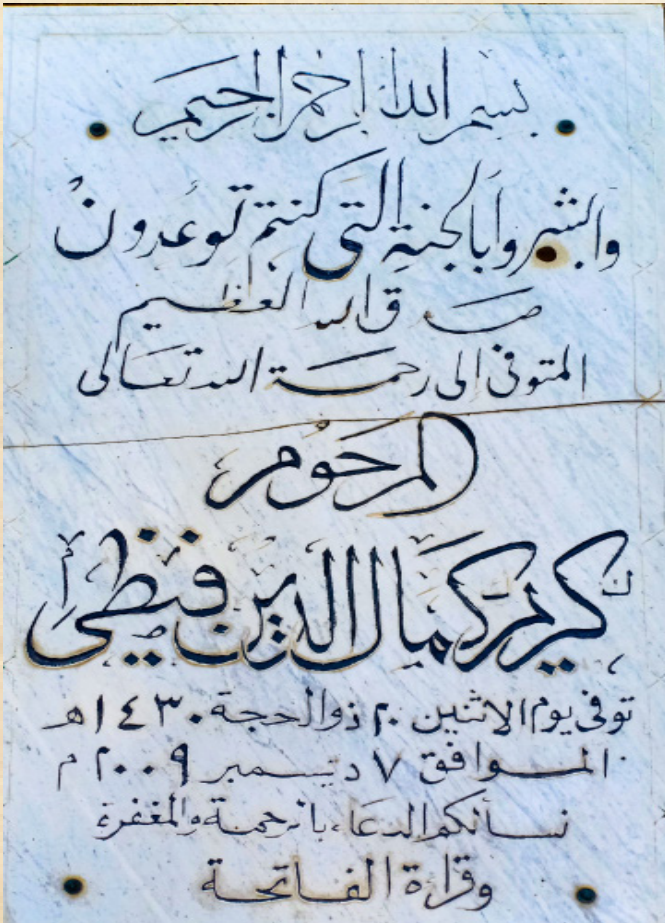 بسم الله الرحمن الرحيم
وابشروا بالجنة التي كنتم توعدون
صدق الله العظيم
المتوفى الى رحمة الله تعالى
المرحوم
كريم كمال الدين فنطي
توفى يوم الاثنين ٢٠ ذو الحجة ١٤٣٠ه
الموافق ٧ ديسمبر ٢٠٠٩ م
نسألكم الدعاء بالرحمة والمغفرة
وقراءة الفاتحة